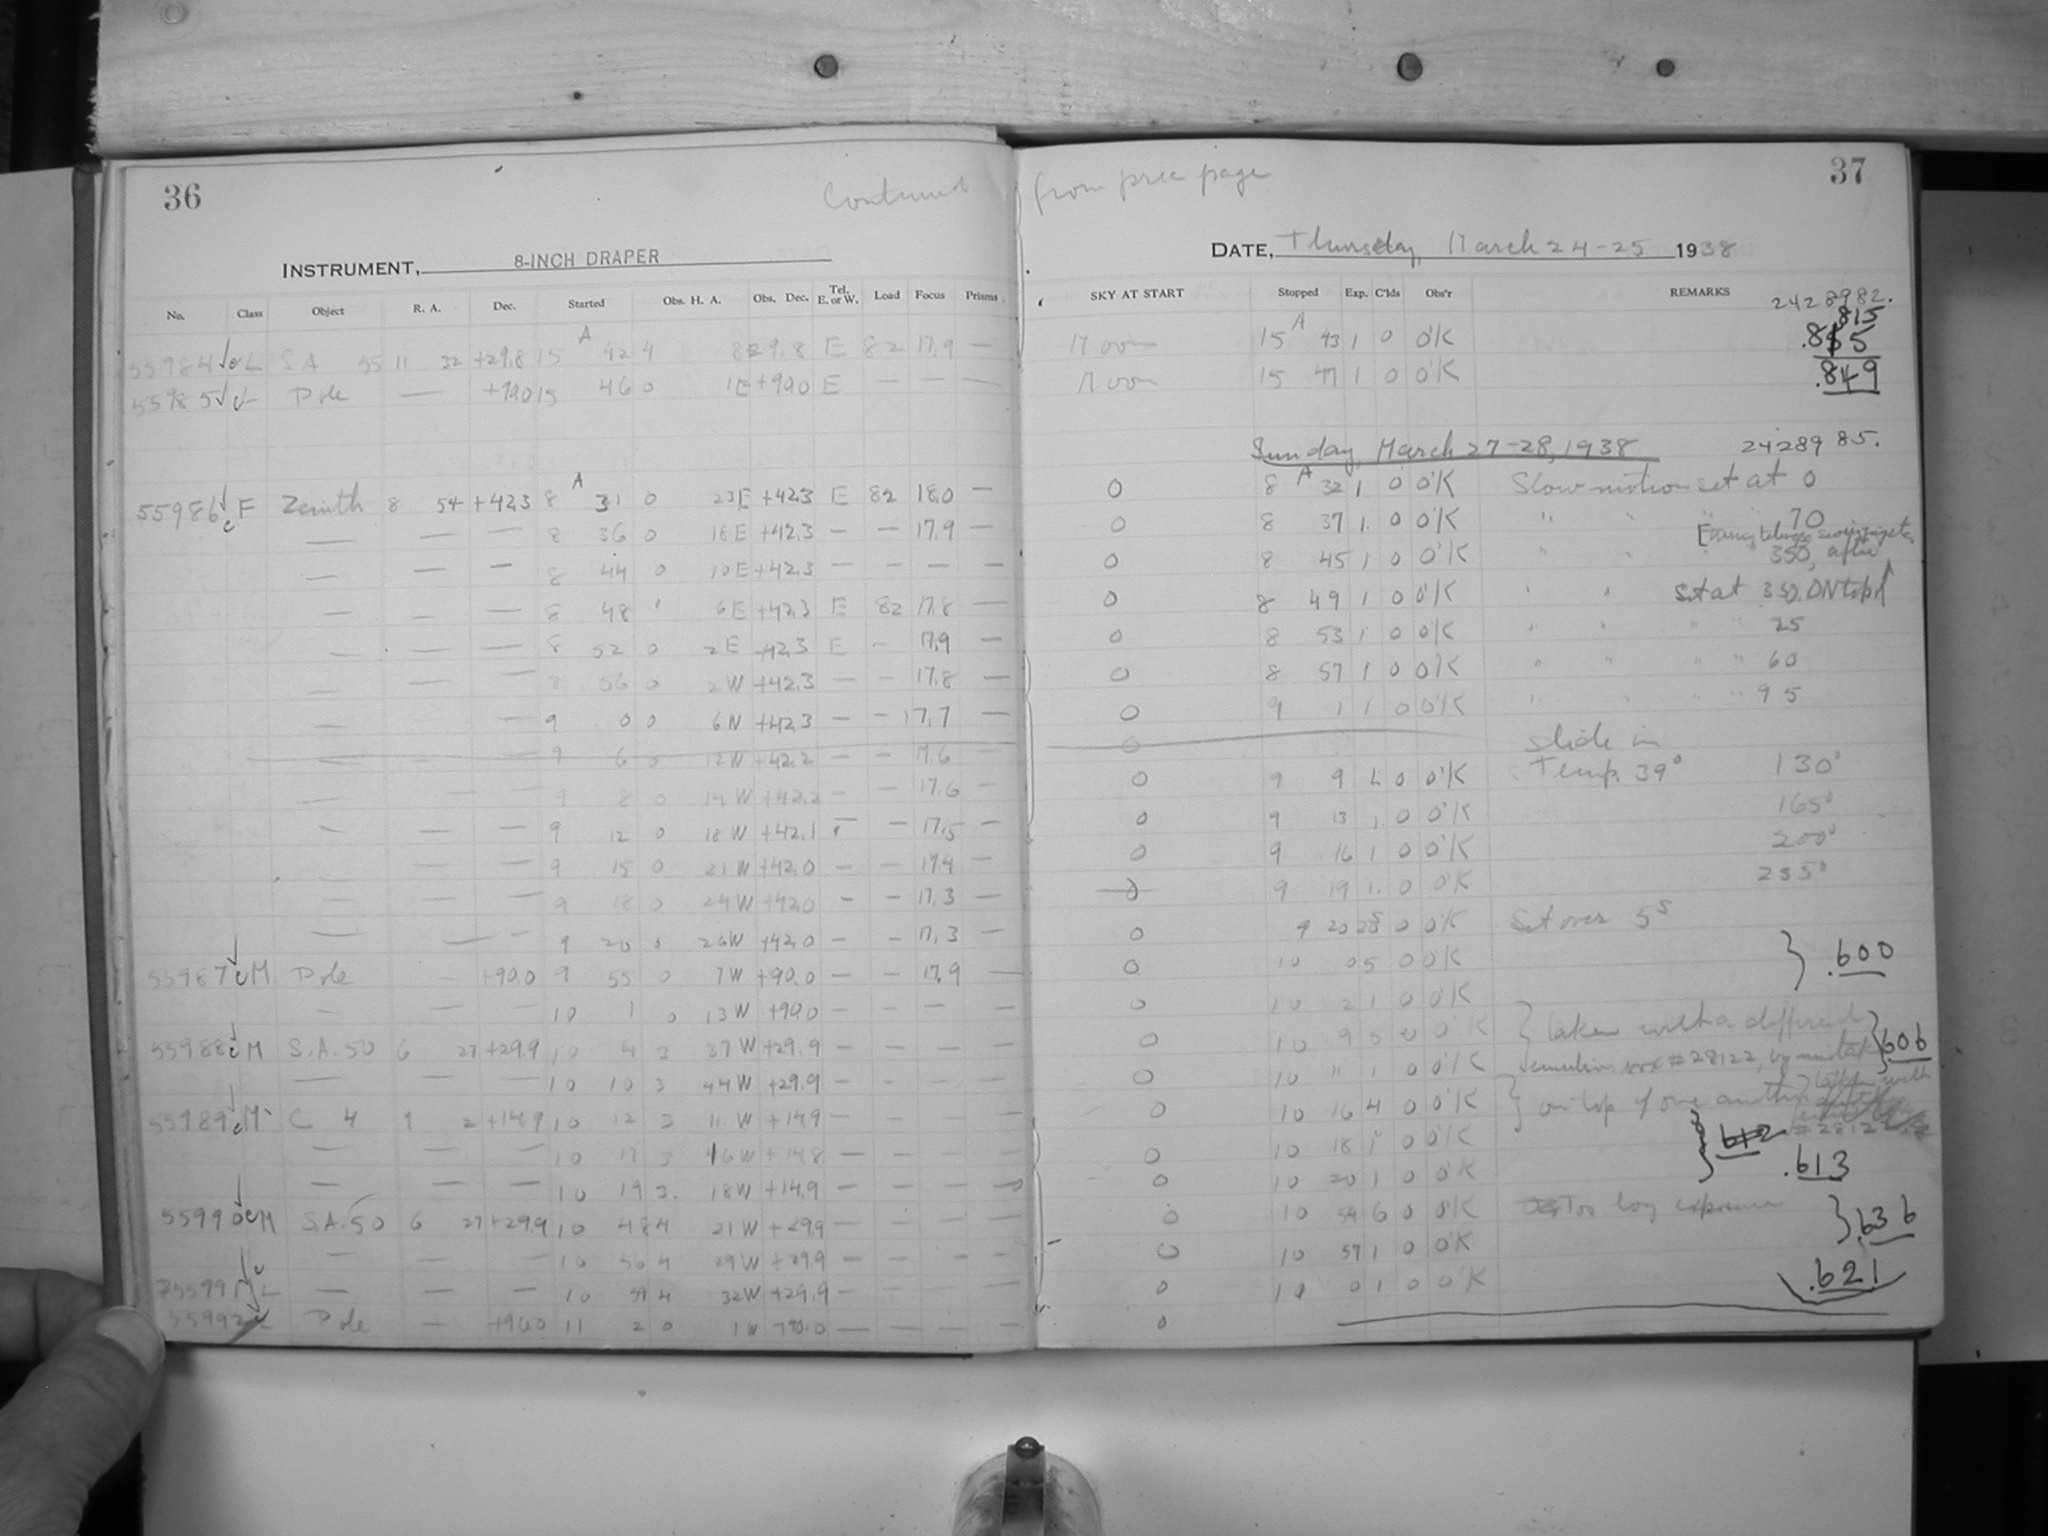 36
Continued from prec page
37
INSTRUMENT, 8-INCH DRAPER
DATE, Thursday, March 24-25 1938
No. Class Object R. A. Dec. Started Obs. H. A. Obs. Dec. Tel. E. or W. Load Focus Prisms
SKY AT START Stopped Exp. C'lds Obs'r REMARKS
2428982.
.815
55984 L S A 55 11 32 +29.8 15 A 42 4 E 82 17.9 — Moon 15 A 43 1 0 O'K
55985 L Pole — +90.0 15 46 0 1E +90.0 E — — — Moon 15 47 1 0 O'K .849
Sunday, March 27-28, 1938 2428985.
55986 F Zenith 8 54 +42.3 8 A 31 0 23E +42.3 E 82 18.0 — 0 8 A 32 1 0 O'K Slow motion set at 0
— — — 8 36 0 18E +42.3 — — 17.9 0 8 37 1 0 O'K " " 70
— — — 8 44 0 10E +42.3 — — — — 0 8 45 1 0 O'K " 350, after
— — — 8 48 " 6E +42.3 E 82 17.8 — 0 8 49 1 0 O'K " " set at 350
— — — 8 52 0 2E +42.3 E - 17.9 — 0 8 53 1 0 O'K " " " " 25
— — — 8 56 0 2W +42.3 — — 17.8 — 0 8 57 1 0 O'K " " " " 60
— — 9 0 0 6W +42.3 — — 17.7 — 0 9 1 1 0 O'K " " " " 95
— — 9 6 0 12W +42.2 — — 17.6 — 0 Slide in
— — — 9 8 0 14W +42.2 — — 17.6 0 9 9 1 0 O'K Temp. 39° 130°
— — — 9 12 0 18W +42.1 — 17.5 — 0 9 13 1 0 O'K 165°
— — — 9 15 0 21W +42.0 — — 17.4 — 0 9 16 1 0 O'K 200°
— — — 9 18 0 24W +42.0 — — 17.3 — 0 9 19 1 0 O'K 235°
— — — 9 20 0 26W +42.0 — — 17.3 — 0 9 20 28s 0 O'K Set over 5s
55987 M Pole — +90.0 9 55 0 7W +90.0 — — 17.9 — 0 10 0 5 0 O'K } .600
— — — 10 1 0 13W +90.0 — — — — 0 10 2 1 0 O'K
55988 M S.A.50 6 27 +29.9 10 4 3 37W +29.9 — — — — 0 10 9 5 0 O'K } taken with a different } .606
— — — 10 10 3 44W +29.9 — — — — 0 10 11 1 0 O'K emulsion #28122, by mistake
55989 M C 4 9 2 +14.9 10 12 3 11W +14.9 — — — 0 10 16 4 0 O'K } on top of one another
— — — 10 17 3 16W +14.8 — — — — 0 10 18 1 0 O'K } .612
— — — 10 19 3 18W +14.9 — — — — 0 10 20 1 0 O'K .613
55990 M S.A.50 6 27 +29.9 10 48 4 21W +29.9 — — — — 0 10 54 6 0 O'K Too long exposure } .636
— — — 10 56 4 29W +29.9 — — — — 0 10 57 1 0 O'K
55991 L — — — 10 59 4 32W +29.9 — — — — 0 10 0 1 0 O'K .621
55992 L Pole — +90.0 11 2 0 1W +90.0 — — — — 0